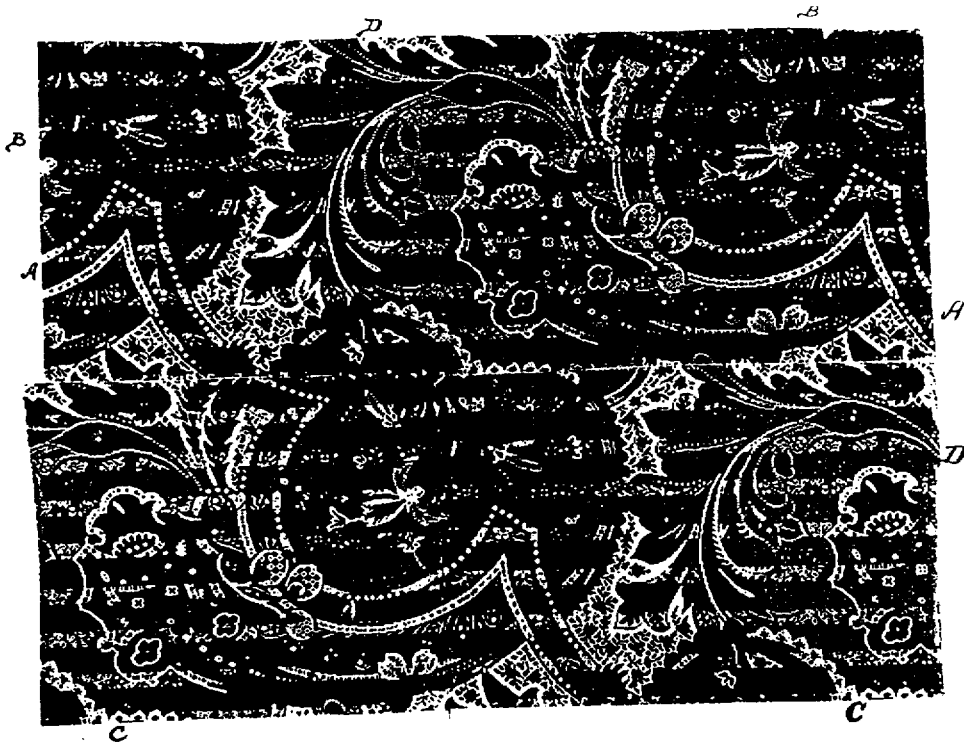 D
B
B
A
A
D
C
C